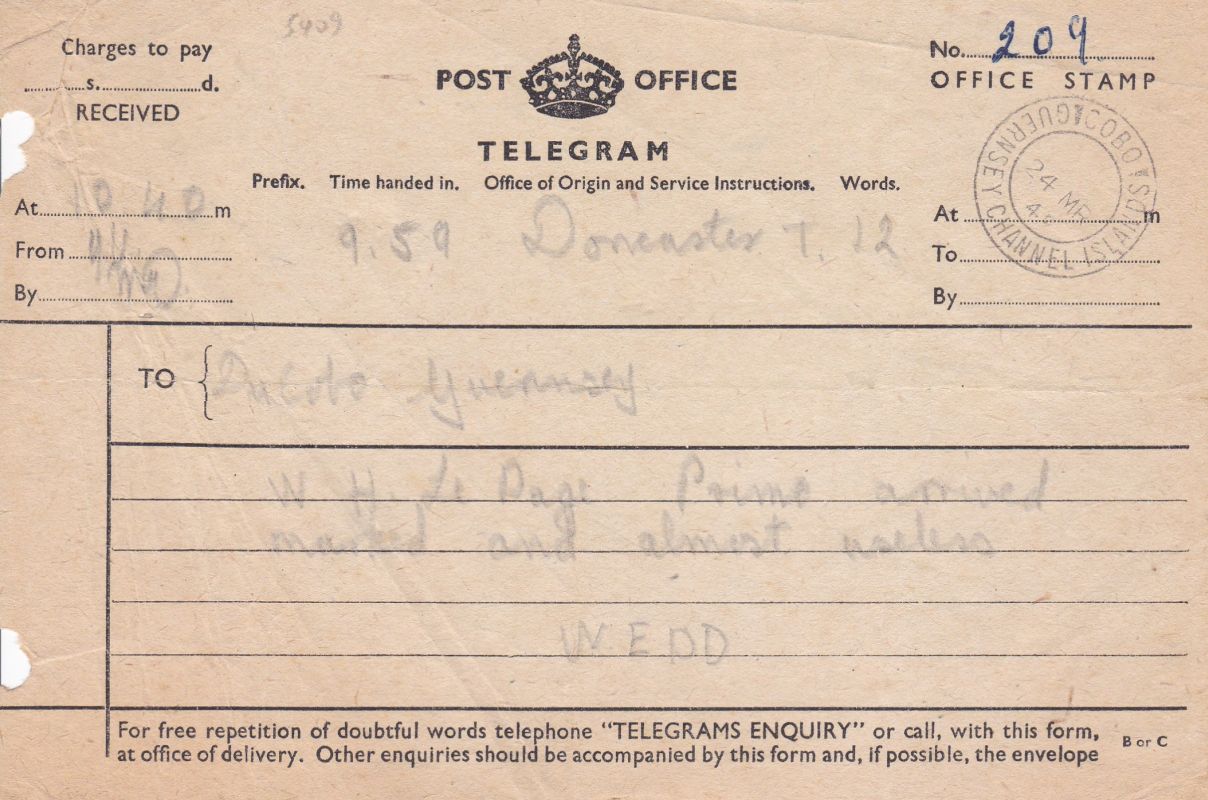 5409
Charges to pay
s. d.
RECEIVED
POST OFFICE
TELEGRAM
No. 209
OFFICE STAMP
COBO GUERNSEY CHANNEL ISLANDS
24 MR
Prefix. Time handed in. Office of Origin and Service Instructions. Words.
At 10 40 m
9.59 Doncaster T. 12
From
By
At m
To
By
TO Guernsey
W. H. Le Page Primo arrived
marked and almost useless
WEDD
For free repetition of doubtful words telephone "TELEGRAMS ENQUIRY" or call, with this form,
at office of delivery. Other enquiries should be accompanied by this form and, if possible, the envelope
B or C